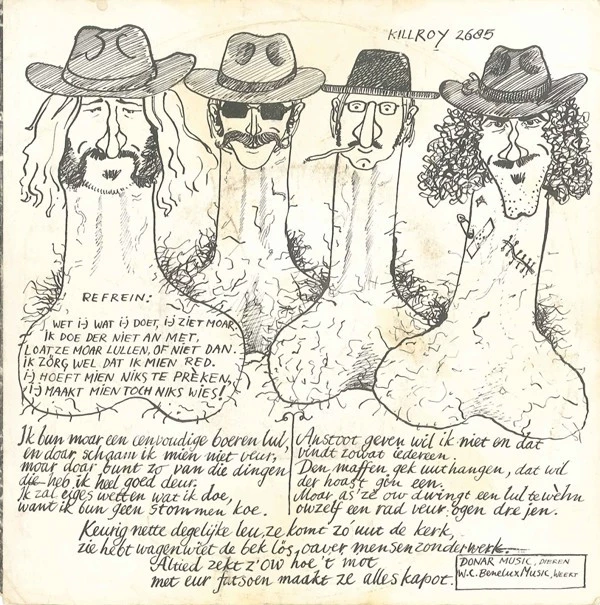 KILLROY 2685
REFREIN:
WET I-J WAT I-J DOET, I-J ZIET MOAR,
IK DOE DER NIET AN MET,
LOAT ZE MOAR LULLEN, OF NIET DAN.
IK ZÖRG WEL DAT IK MIEN RED.
I-J HOEFT MIEN NIKS TE PRÈKEN,
I-J MAAKT MIEN TOCH NIKS WIES!
Ik bun moar een eenvoudige boeren lul,
en doar schaam ik mien niet veur,
moar doar bunt zo van die dingen
die heb ik heel goed deur.
Ik zal eiges wetten wat ik doe,
want ik bun geen stommen koe.
Anstoot geven wil ik niet en dat
vindt zowat iedereen.
Den maffen gek uuthangen, dat wil
der hoast gin een.
Moar as ze ow dwingt een lul te wèhn
owzelf een rad veur ogen dreijen.
Keurig nette degelijke leu, ze komt zó uut de kerk,
zie hebt wagenwiet de bek lös, oaver mensen zonder werk.
Altied zekt z'ow hoe't mot
met eur fatsoen maakt ze alles kapot.
DONAR MUSIC, DIEREN
W.C. Benelux Music, WEERT